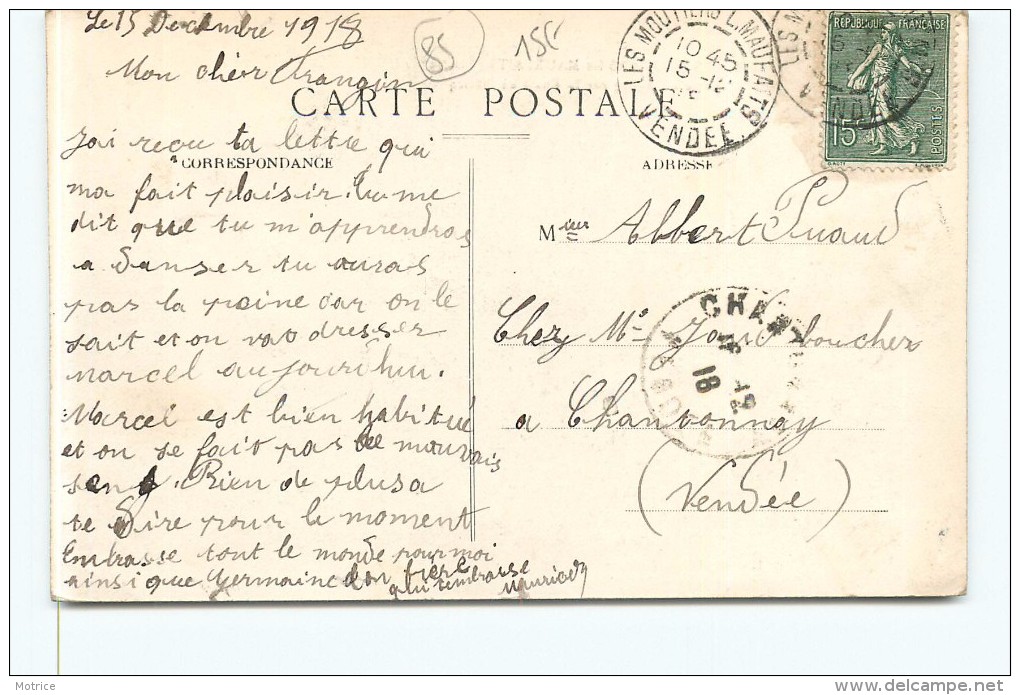 Le 15 Decembre 1918
85
15€
Mon chèr frangin
CARTE POSTALE
J'ai reçu ta lettre qui
CORRESPONDANCE
ma fait plaisir. tu me
dit que tu m'apprendras
a danser tu auras
pas la peine car on le
sait et on vat dresser
Marcel aujourd'hui.
Marcel est bien habitué
et on se fait pas de mauvais
sang. Rien de plus a
te dire pour le moment
Embrasse tout le monde pour moi
ainsi que Germaine ton frere
qui t'embrasse
Maurice
LES MOUTIERS L. MAUFAITS
10 45
15 -12
VENDEE
REPUBLIQUE FRANÇAISE
15c
POSTES
ADRESSE
Msieur Albert Puaud
Chez Mr boucher
a Chantonnay
(Vendée)
CHANTONNAY
16 -12
18
Motrice
delcampe.net